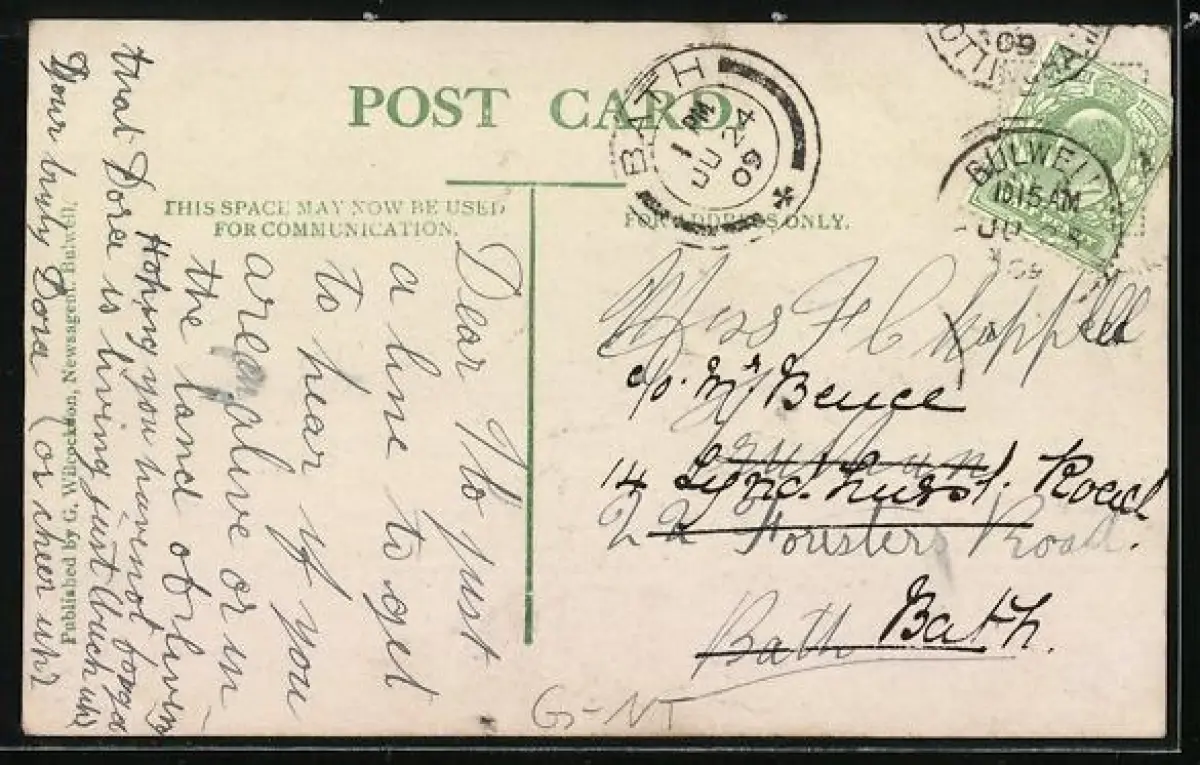 POST CARD.
THIS SPACE MAY NOW BE USED
FOR COMMUNICATION.
FOR ADDRESS ONLY.
BATH
1 PM
JU 24
09
09
BULWELL
10 15 AM
JU
09
Dear Flo just
a line to get
to hear if you
are alive or in
the land oblivion
Hoping you havenot forga
that Dora is living just
Your truly Dora (or cheer
Published by G. Wilcockson, Newsagent, Bulwell.
Miss F C Chappell
c/o. Mrs Bence
14 Lyndhurst. Road
22 Foresters Road.
Bath
Bath.
G-NT